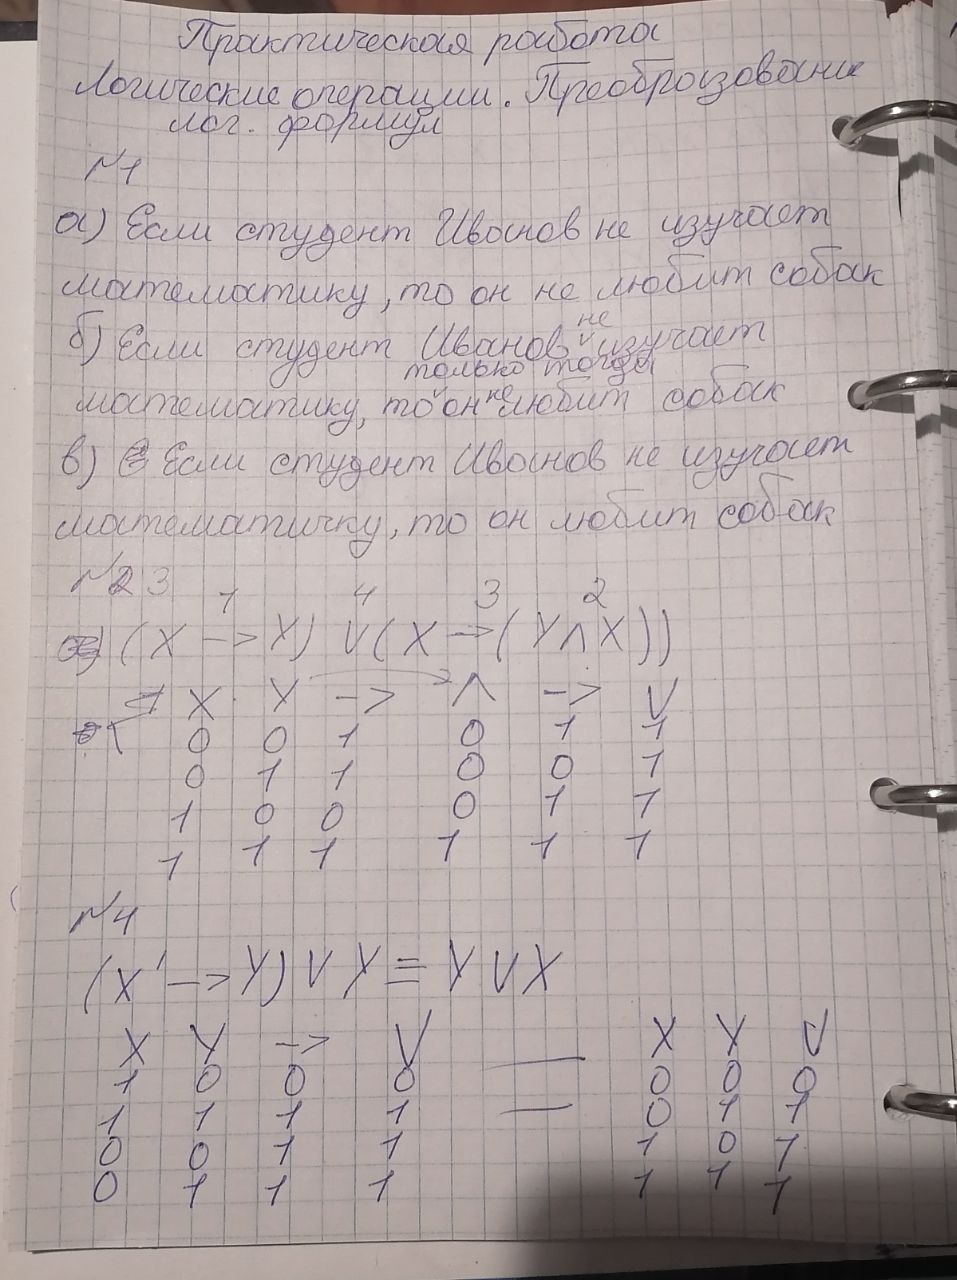 Практическая работа
Логические операции. Преобразование
лог. формул
№1
а) Если студент Иванов не изучает
математику, то он не любит собак
б) Если студент Иванов не изучает
только тогда
математику, то он не любит собак
в) Если студент Иванов не изучает
математичку, то он любит собак
№3
1 4 3 2
(X -> Y) V (X -> (Y ∧ X))
X Y -> ∧ -> V
0 0 1 0 1 1
0 1 1 0 0 1
1 0 0 0 1 1
1 1 1 1 1 1
№4
(X' -> Y) V Y = Y V X
X Y -> V — X Y V
1 0 0 0 0 0 0
1 1 1 1 — 0 1 1
0 0 1 1 1 0 1
0 1 1 1 1 1 1